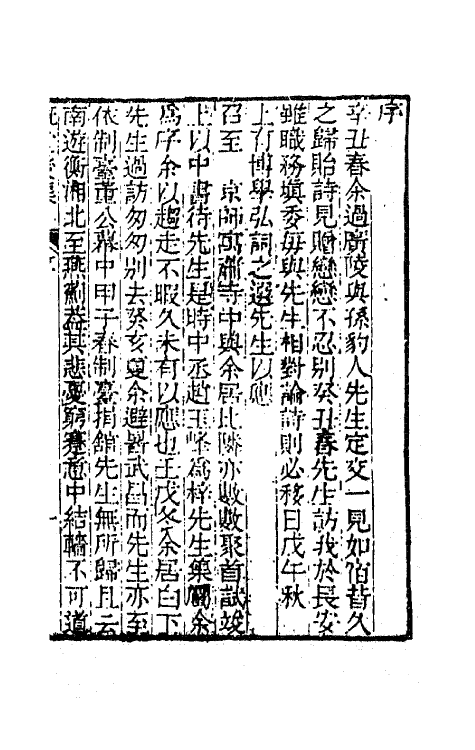 序
辛丑春余過廣陵與孫豹人先生定交一見如宿昔久
之歸貽詩見贈戀戀不忍别癸丑春先生訪我於長安
雖職務填委每與先生相對論詩則必移日戊午秋
上有博學弘詞之選先生以應
召至 京師寓蕭寺中與余居比隣亦數數聚首試竣
上以中書待先生是時中丞趙玉峰為梓先生集屬余
為序余以趨走不暇久未有以應也壬戌冬余居白下
先生過訪匆匆别去癸亥夏余避暑武昌而先生亦至
依制臺董公幕中甲子春制臺捐舘先生無所歸且云
南遊衡湘北至燕薊益其悲憂窮蹇意中結轖不可道